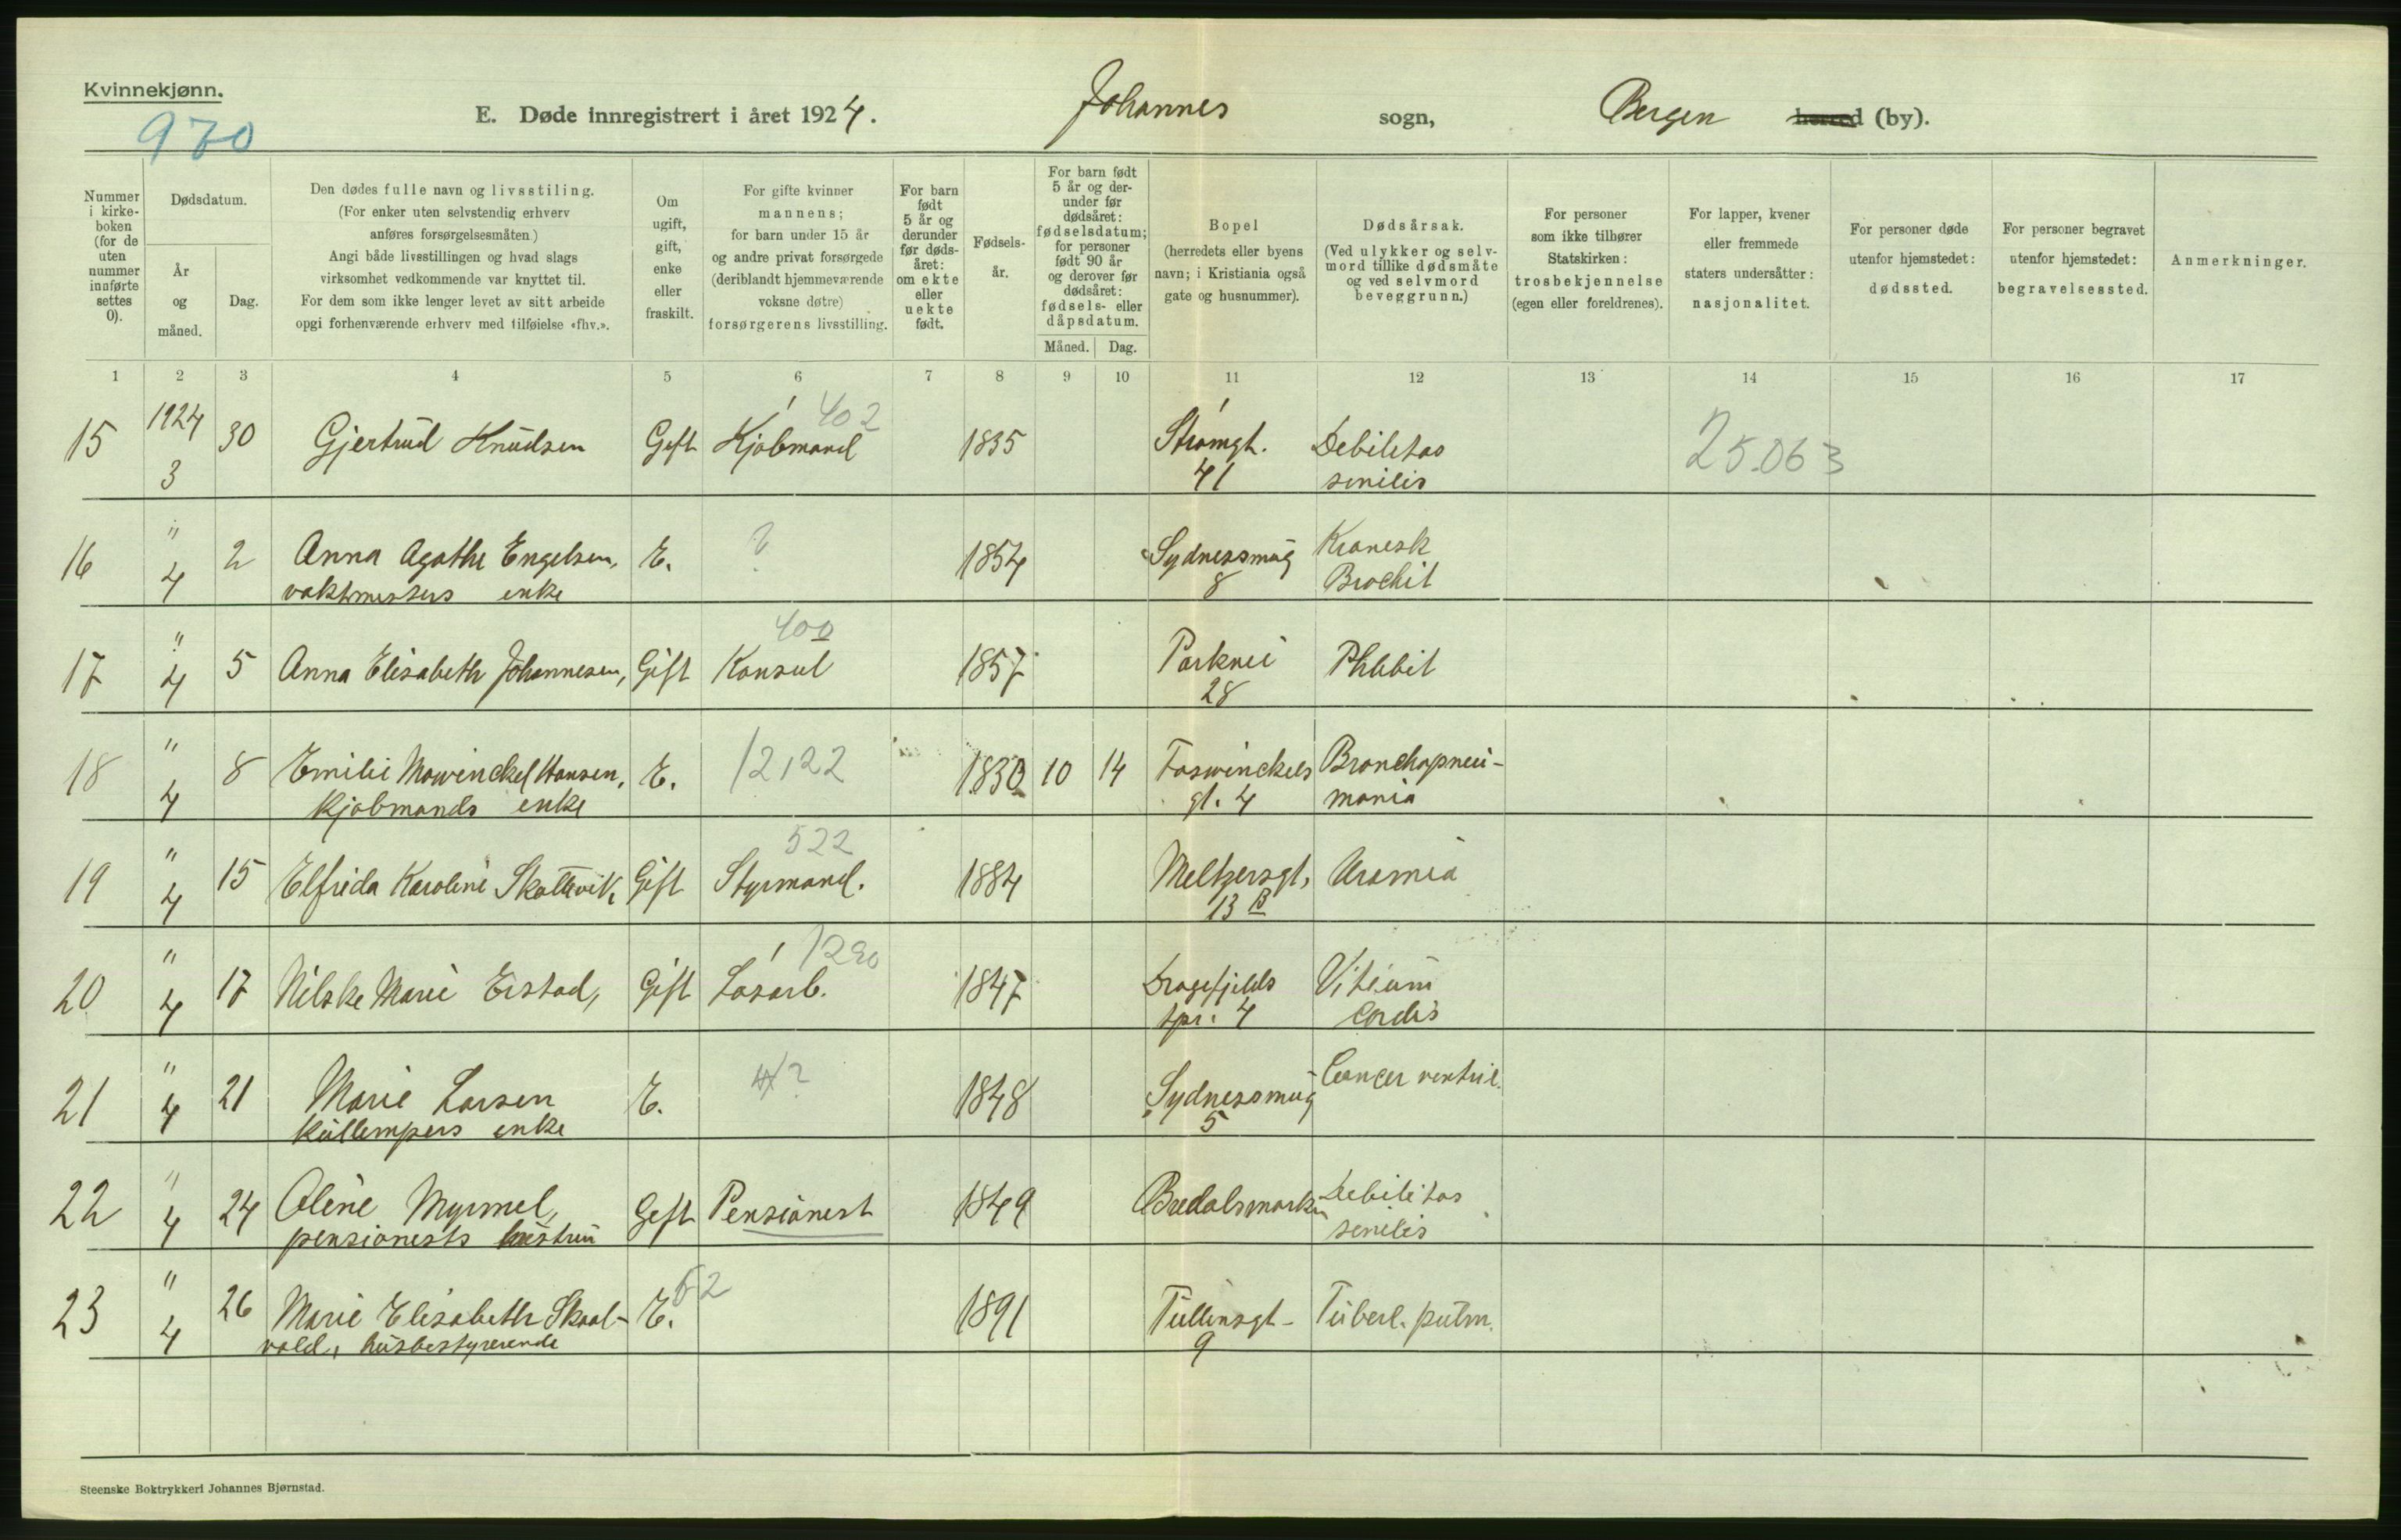 Kvinnekjønn.
970
E. Døde innregistrert i året 1924. Johannes sogn, Bergen herred (by).
Nummer i kirke- boken (for de uten nummer innførte settes 0).
Dødsdatum.
År og måned.
Dag.
Den dødes fulle navn og livsstilling.
(For enker uten selvstendig erhverv
anføres forsørgelsesmåten)
Angi både livsstillingen og hvad slags
virksomhet vedkommende var knyttet til.
For dem som ikke lenger levet av sitt arbeide
opgi forhenværende erhverv med tilføielse «fhv.».
Om ugift, gift, enke eller fraskilt.
For gifte kvinner
mannens;
for barn under 15 år
og andre privat forsørgede
(deriblandt hjemmeværende
voksne døtre)
forsørgerens livsstilling.
For barn født 5 år og derunder før døds- året: om ekte eller uekte født.
Fødsels- år.
For barn født 5 år og der- under før dødsåret: fødselsdatum; for personer født 90 år og derover før dødsåret: fødsels- eller dåpsdatum.
Måned. Dag.
Bopel
(herredets eller byens
navn; i Kristiania også
gate og husnummer).
Dødsårsak.
(Ved ulykker og selv-
mord tillike dødsmåte
og ved selvmord
beveggrunn.)
For personer
som ikke tilhører
Statskirken:
trosbekjennelse
(egen eller foreldrenes).
For lapper, kvener
eller fremmede
staters undersåtter:
nasjonalitet.
For personer døde
utenfor hjemstedet:
dødssted.
For personer begravet
utenfor hjemstedet:
begravelsessted.
Anmerkninger.
1 2 3 4 5 6 7 8 9 10 11 12 13 14 15 16 17
402
15 1924 30 Gjertrud Knudsen Gift Kjøbmand 1835 Strømgt. Debilitas 25.063
3 41 senilis
16 " 2 Anna Agathe Engelsen, E. ? 1854 Sydnessmug Kronisk
4 vaktmesters enke 8 Brochit
400
17 " 5 Anna Elisabeth Johannesen, Gift Konsul 1857 Parkvei Phlebit
4 28
18 " 8 Emilie Mowinckel Hansen, E. 12122 1830 10 14 Foswinckels Bronchopneu-
4 Kjøbmands enke gt. 4 monia
522
19 " 15 Elfrida Karoline Skottevik, Gift Styrmand. 1884 Meltzersgt. Uræmia
4 13 B
1290
20 " 17 Nilske Marie Eistad, Gift Løsarb. 1847 Dragefjelds Vitium
4 tpr. 4 Cordis
21 " 21 Marie Larsen E. ? 1848 Sydnessmug Cancer ventric.
4 Kullempers enke 5
22 " 24 Oline Myrmel, Gift Pensionist 1849 Bredalsmarken Debilitas
4 pensionists hustru senilis
62
23 " 26 Marie Elisabeth Skaal- E. 1891 Tullinsgt- Tuberl. pulm.
4 vold, husbestyrerende 9
Steenske Boktrykkeri Johannes Bjørnstad.